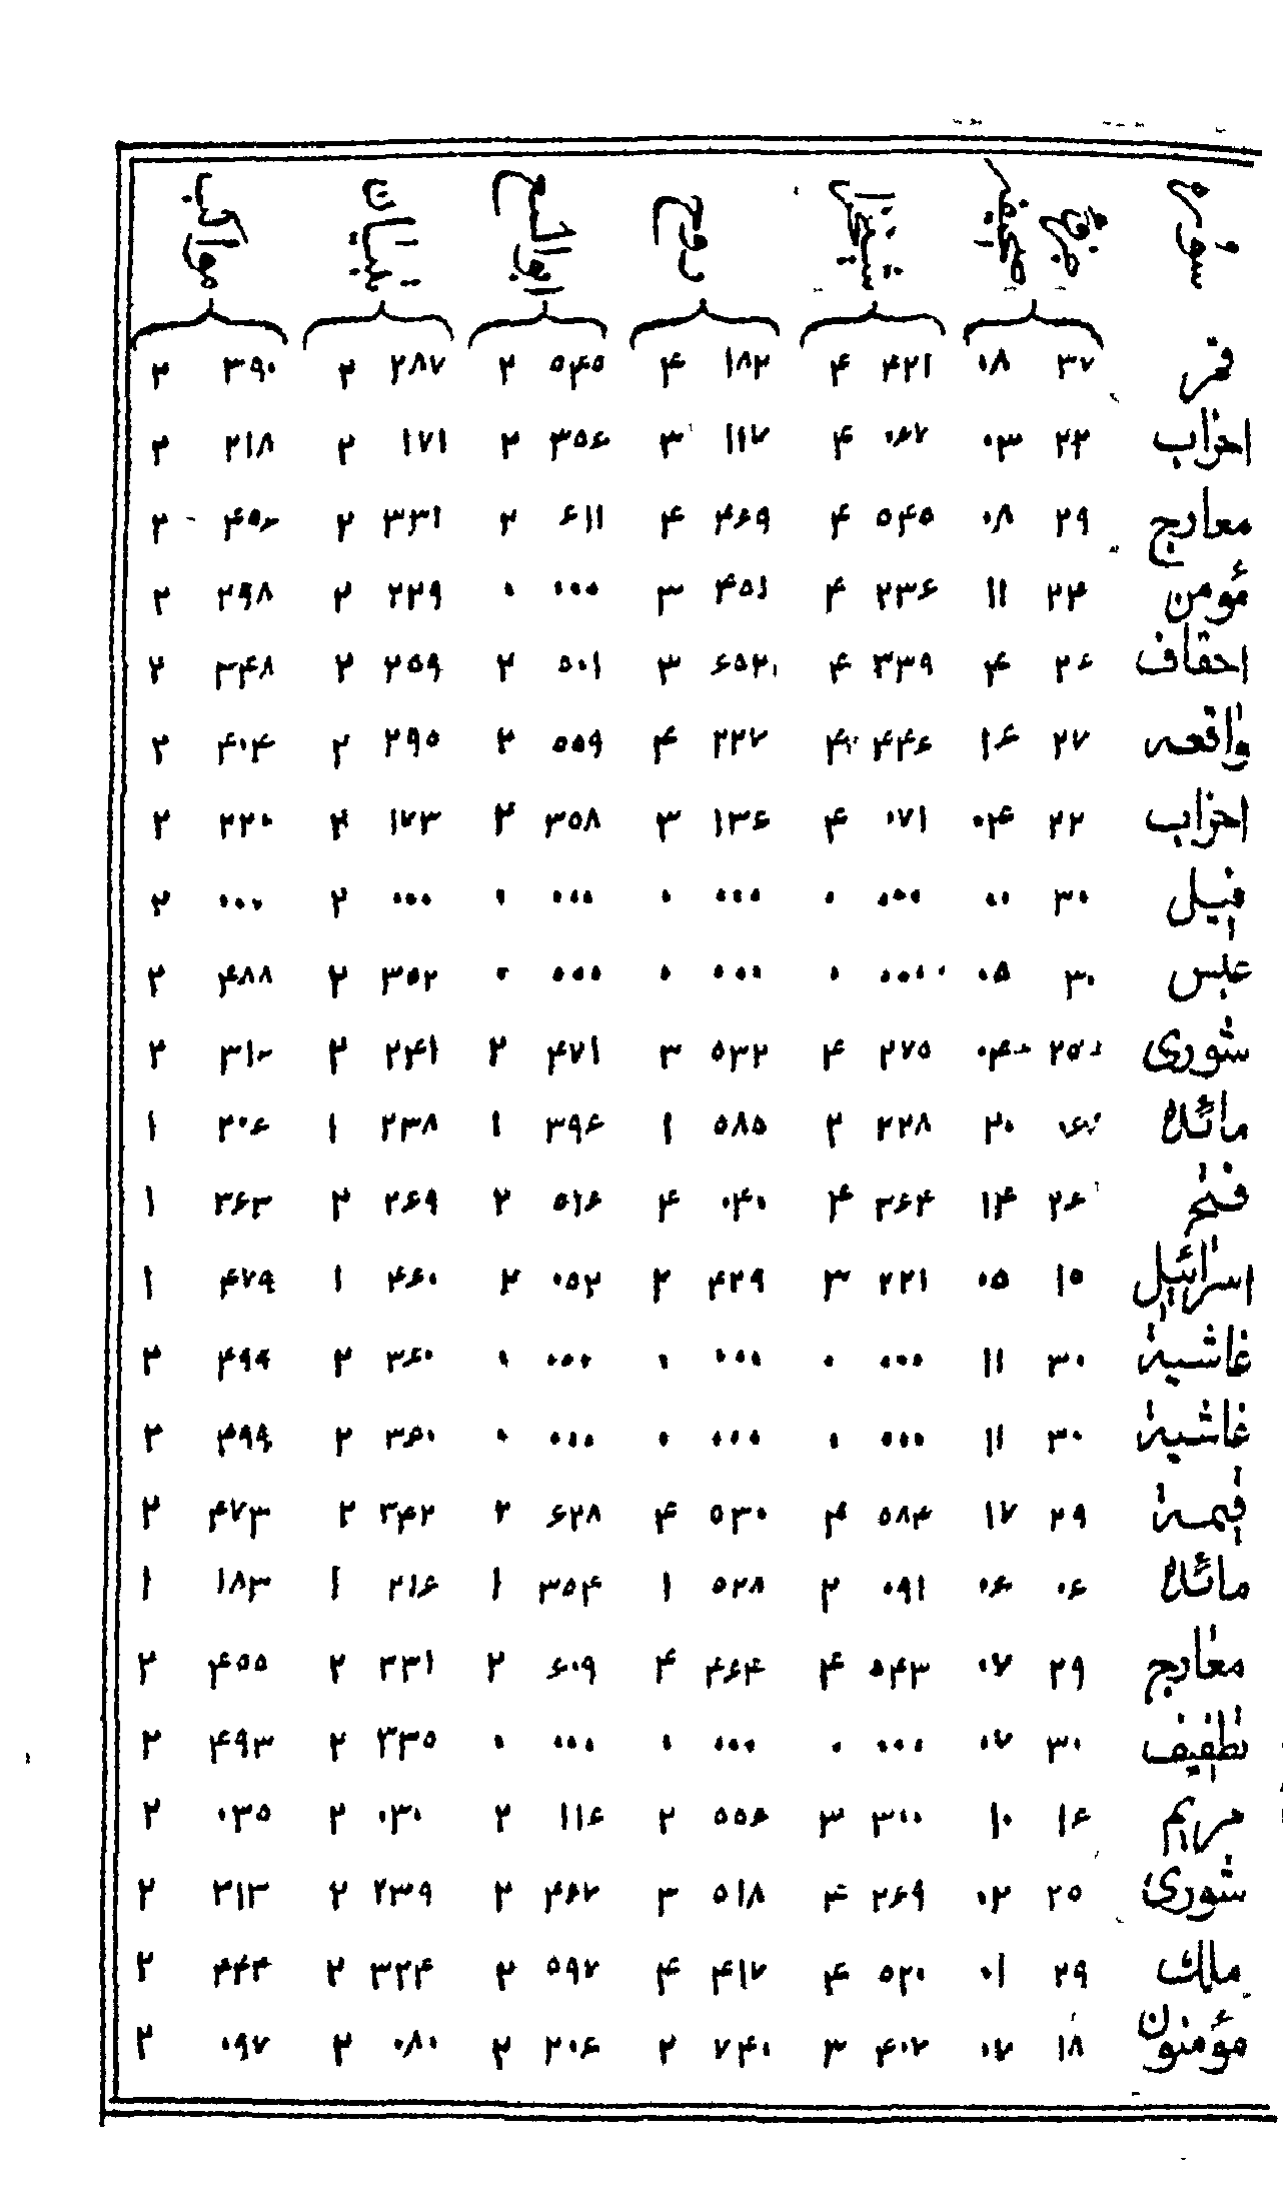 سوره جزو روح تبیان
قمر ۳۷ ۰۸ ۴۲۱ ۴ ۱۸۲ ۴ ۵۴۵ ۲ ۲۸۷ ۲ ۳۹۰ ۲
احزاب ۲۲ ۰۳ ۰۶۷ ۴ ۱۱۷ ۳ ۳۵۶ ۲ ۱۷۱ ۲ ۲۱۸ ۲
معارج ۲۹ ۰۸ ۵۴۵ ۴ ۴۶۹ ۴ ۶۱۱ ۲ ۳۳۱ ۲ ۲
مؤمن ۲۴ ۱۱ ۲۳۶ ۴ ۴۵۱ ۳ ۰۰۰ ۰ ۲۲۹ ۲ ۲۹۸ ۲
احقاف ۲۶ ۴ ۳۳۹ ۴ ۶۵۲ ۳ ۵۰۱ ۲ ۲۵۹ ۲ ۳۴۸ ۲
واقعه ۲۷ ۱۶ ۴۴۶ ۴ ۲۲۷ ۴ ۵۵۹ ۲ ۲۹۵ ۲ ۴۰۴ ۲
احزاب ۲۲ ۰۴ ۰۷۱ ۴ ۱۳۶ ۳ ۳۵۸ ۲ ۱۷۳ ۲ ۲۲۰ ۲
فیل ۳۰ ۰۰ ۰۰۰ ۰ ۰۰۰ ۰ ۰۰۰ ۰ ۰۰۰ ۲ ۰۰۰ ۲
عبس ۳۰ ۰۵ ۰۰۰ ۰ ۰۰۰ ۰ ۰۰۰ ۰ ۳۵۲ ۲ ۴۸۸ ۲
شوری ۲۵ ۰۴ ۲۷۵ ۴ ۵۳۲ ۳ ۴۷۱ ۲ ۲۴۱ ۲ ۲
مائدة ۰۶ ۲۰ ۲۲۸ ۲ ۵۸۵ ۱ ۳۹۶ ۱ ۲۳۸ ۱ ۲۰۶ ۱
فتح ۲۶ ۱۴ ۳۶۴ ۴ ۰۴۰ ۴ ۵۱۶ ۲ ۲۶۹ ۲ ۳۶۳ ۱
اسرائیل ۱۵ ۰۵ ۲۲۱ ۳ ۴۲۹ ۲ ۰۵۲ ۲ ۴۶۰ ۱ ۴۷۹ ۱
غاشیة ۳۰ ۱۱ ۰۰۰ ۰ ۰۰۰ ۰ ۰۰۰ ۰ ۳۶۰ ۲ ۴۹۹ ۲
غاشیة ۳۰ ۱۱ ۰۰۰ ۰ ۰۰۰ ۰ ۰۰۰ ۰ ۳۶۰ ۲ ۴۹۹ ۲
قیمة ۲۹ ۱۷ ۵۸۴ ۴ ۵۳۰ ۴ ۶۲۸ ۲ ۳۴۲ ۲ ۴۷۳ ۲
مائدة ۰۶ ۰۶ ۰۹۱ ۲ ۵۲۸ ۱ ۳۵۴ ۱ ۲۱۶ ۱ ۱۸۳ ۱
معارج ۲۹ ۰۷ ۵۴۳ ۴ ۴۶۴ ۴ ۶۰۹ ۲ ۳۳۱ ۲ ۴۵۵ ۲
تطفیف ۳۰ ۰۷ ۰۰۰ ۰ ۰۰۰ ۰ ۰۰۰ ۰ ۳۳۵ ۲ ۴۹۳ ۲
مریم ۱۶ ۱۰ ۳۰۰ ۳ ۵۵۶ ۲ ۱۱۶ ۲ ۰۳۰ ۲ ۰۳۵ ۲
شوری ۲۵ ۰۲ ۲۶۹ ۴ ۵۱۸ ۳ ۴۶۷ ۲ ۲۳۹ ۲ ۳۱۳ ۲
ملک ۲۹ ۰۱ ۵۲۰ ۴ ۴۱۷ ۴ ۵۹۷ ۲ ۳۲۴ ۲ ۴۴۴ ۲
مؤمنون ۱۸ ۰۷ ۴۰۲ ۳ ۷۴۰ ۲ ۲۰۶ ۲ ۰۸۰ ۲ ۰۹۷ ۲